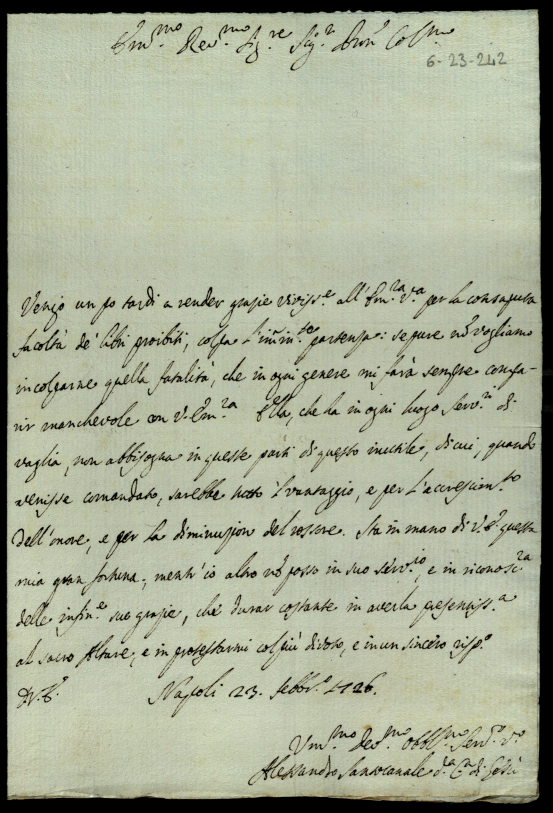 Em.mo Rev.mo Sig.re Sig.r Pron.e Col.mo
6-23-242
Vengo un po tardi a render grazie viviss.e all'Em.za V.a per la consaputa
facoltà de' libri proibiti, colpa l'imin.te partenza: se pure nō vogliamo
incolparne quella fatalità, che in ogni genere mi farà sempre compa-
rir manchevole con V. Em.za Ella, che ha in ogni luogo Serv.ri di
vaglia, non abbisogna in queste parti di questo inutile, di cui, quando
venisse comandato, sarebbe tutto il vantaggio, e per l'accrescim.to
dell'onore, e per la diminuzion del rossore. Sta in mano di V.E. questa
mia gran fortuna, mentr'io altro nō posso in suo serv.io, e in riconosc.za
delle infin.e sue grazie, che durar costante in averla presentiss.a
al sacro Altare, e in protestarmi col più divoto, e in un sincero risp.o
Di V.E. Napoli 23. Febbr.o 1726.
Um.mo Dev.mo Obbl.mo Serv.e V.o
Alessandro Santocanale d.a C.a di Gesù